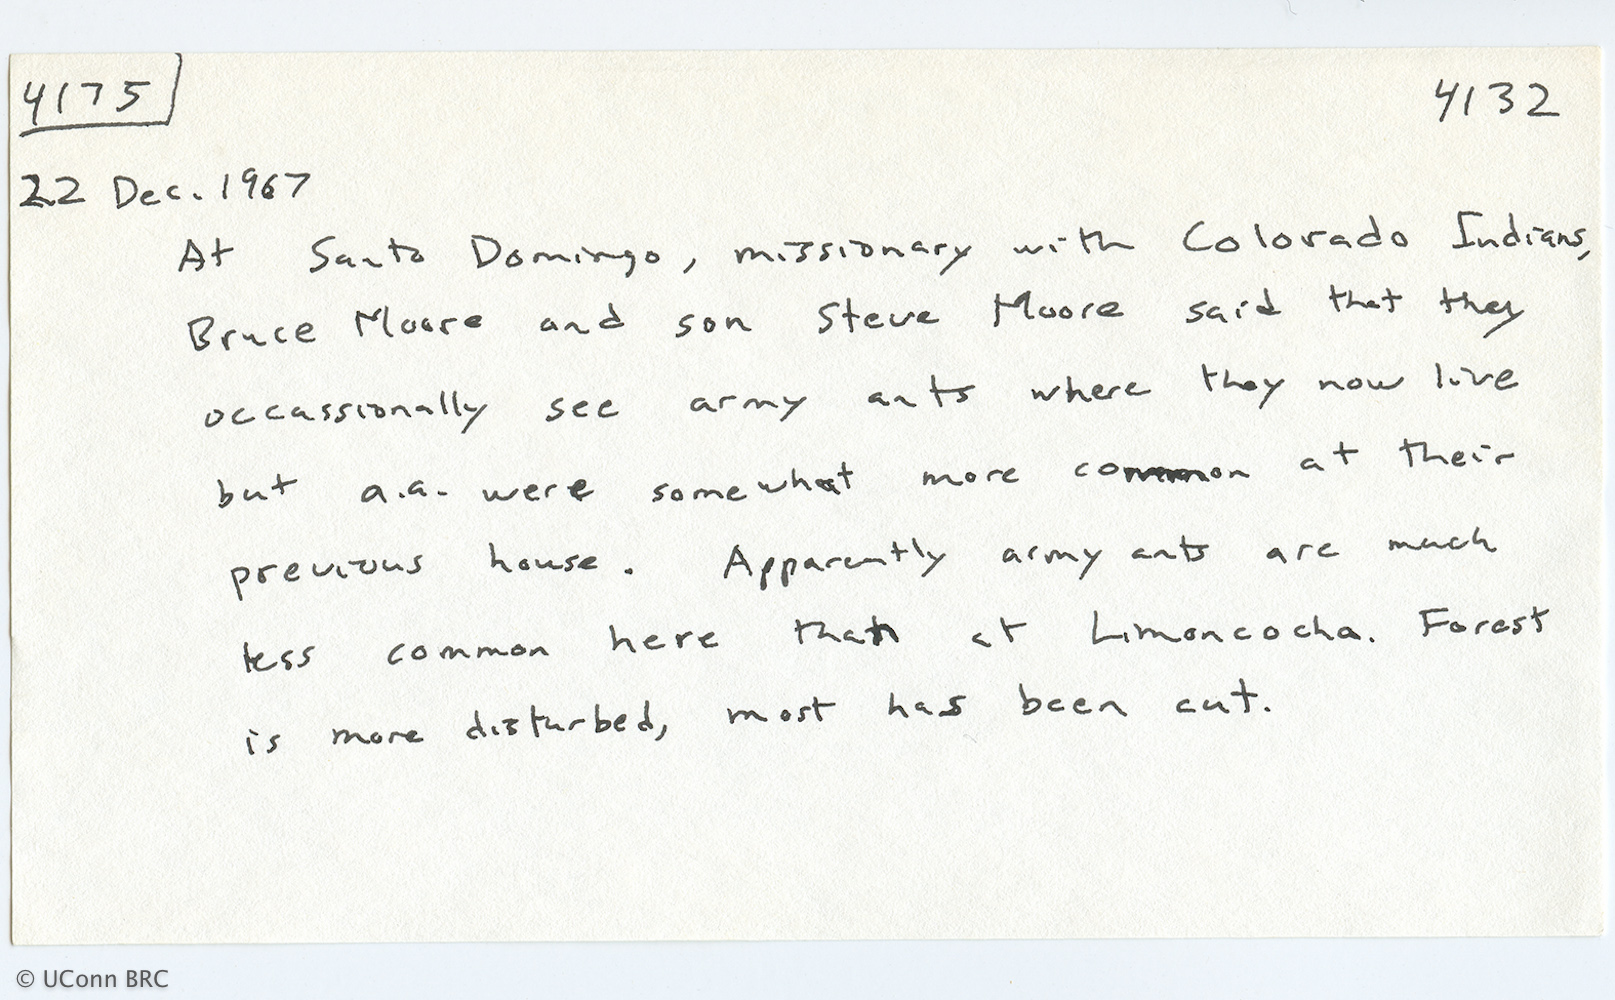 4175 4132
22 Dec. 1967
At Santo Domingo, missionary with Colorado Indians,
Bruce Moore and son Steve Moore said that they
occassionally see army ants where they now live
but a.a. were somewhat more common at their
previous house. Apparently army ants are much
less common here than at Limoncocha. Forest
is more disturbed, most has been cut.
© UConn BRC